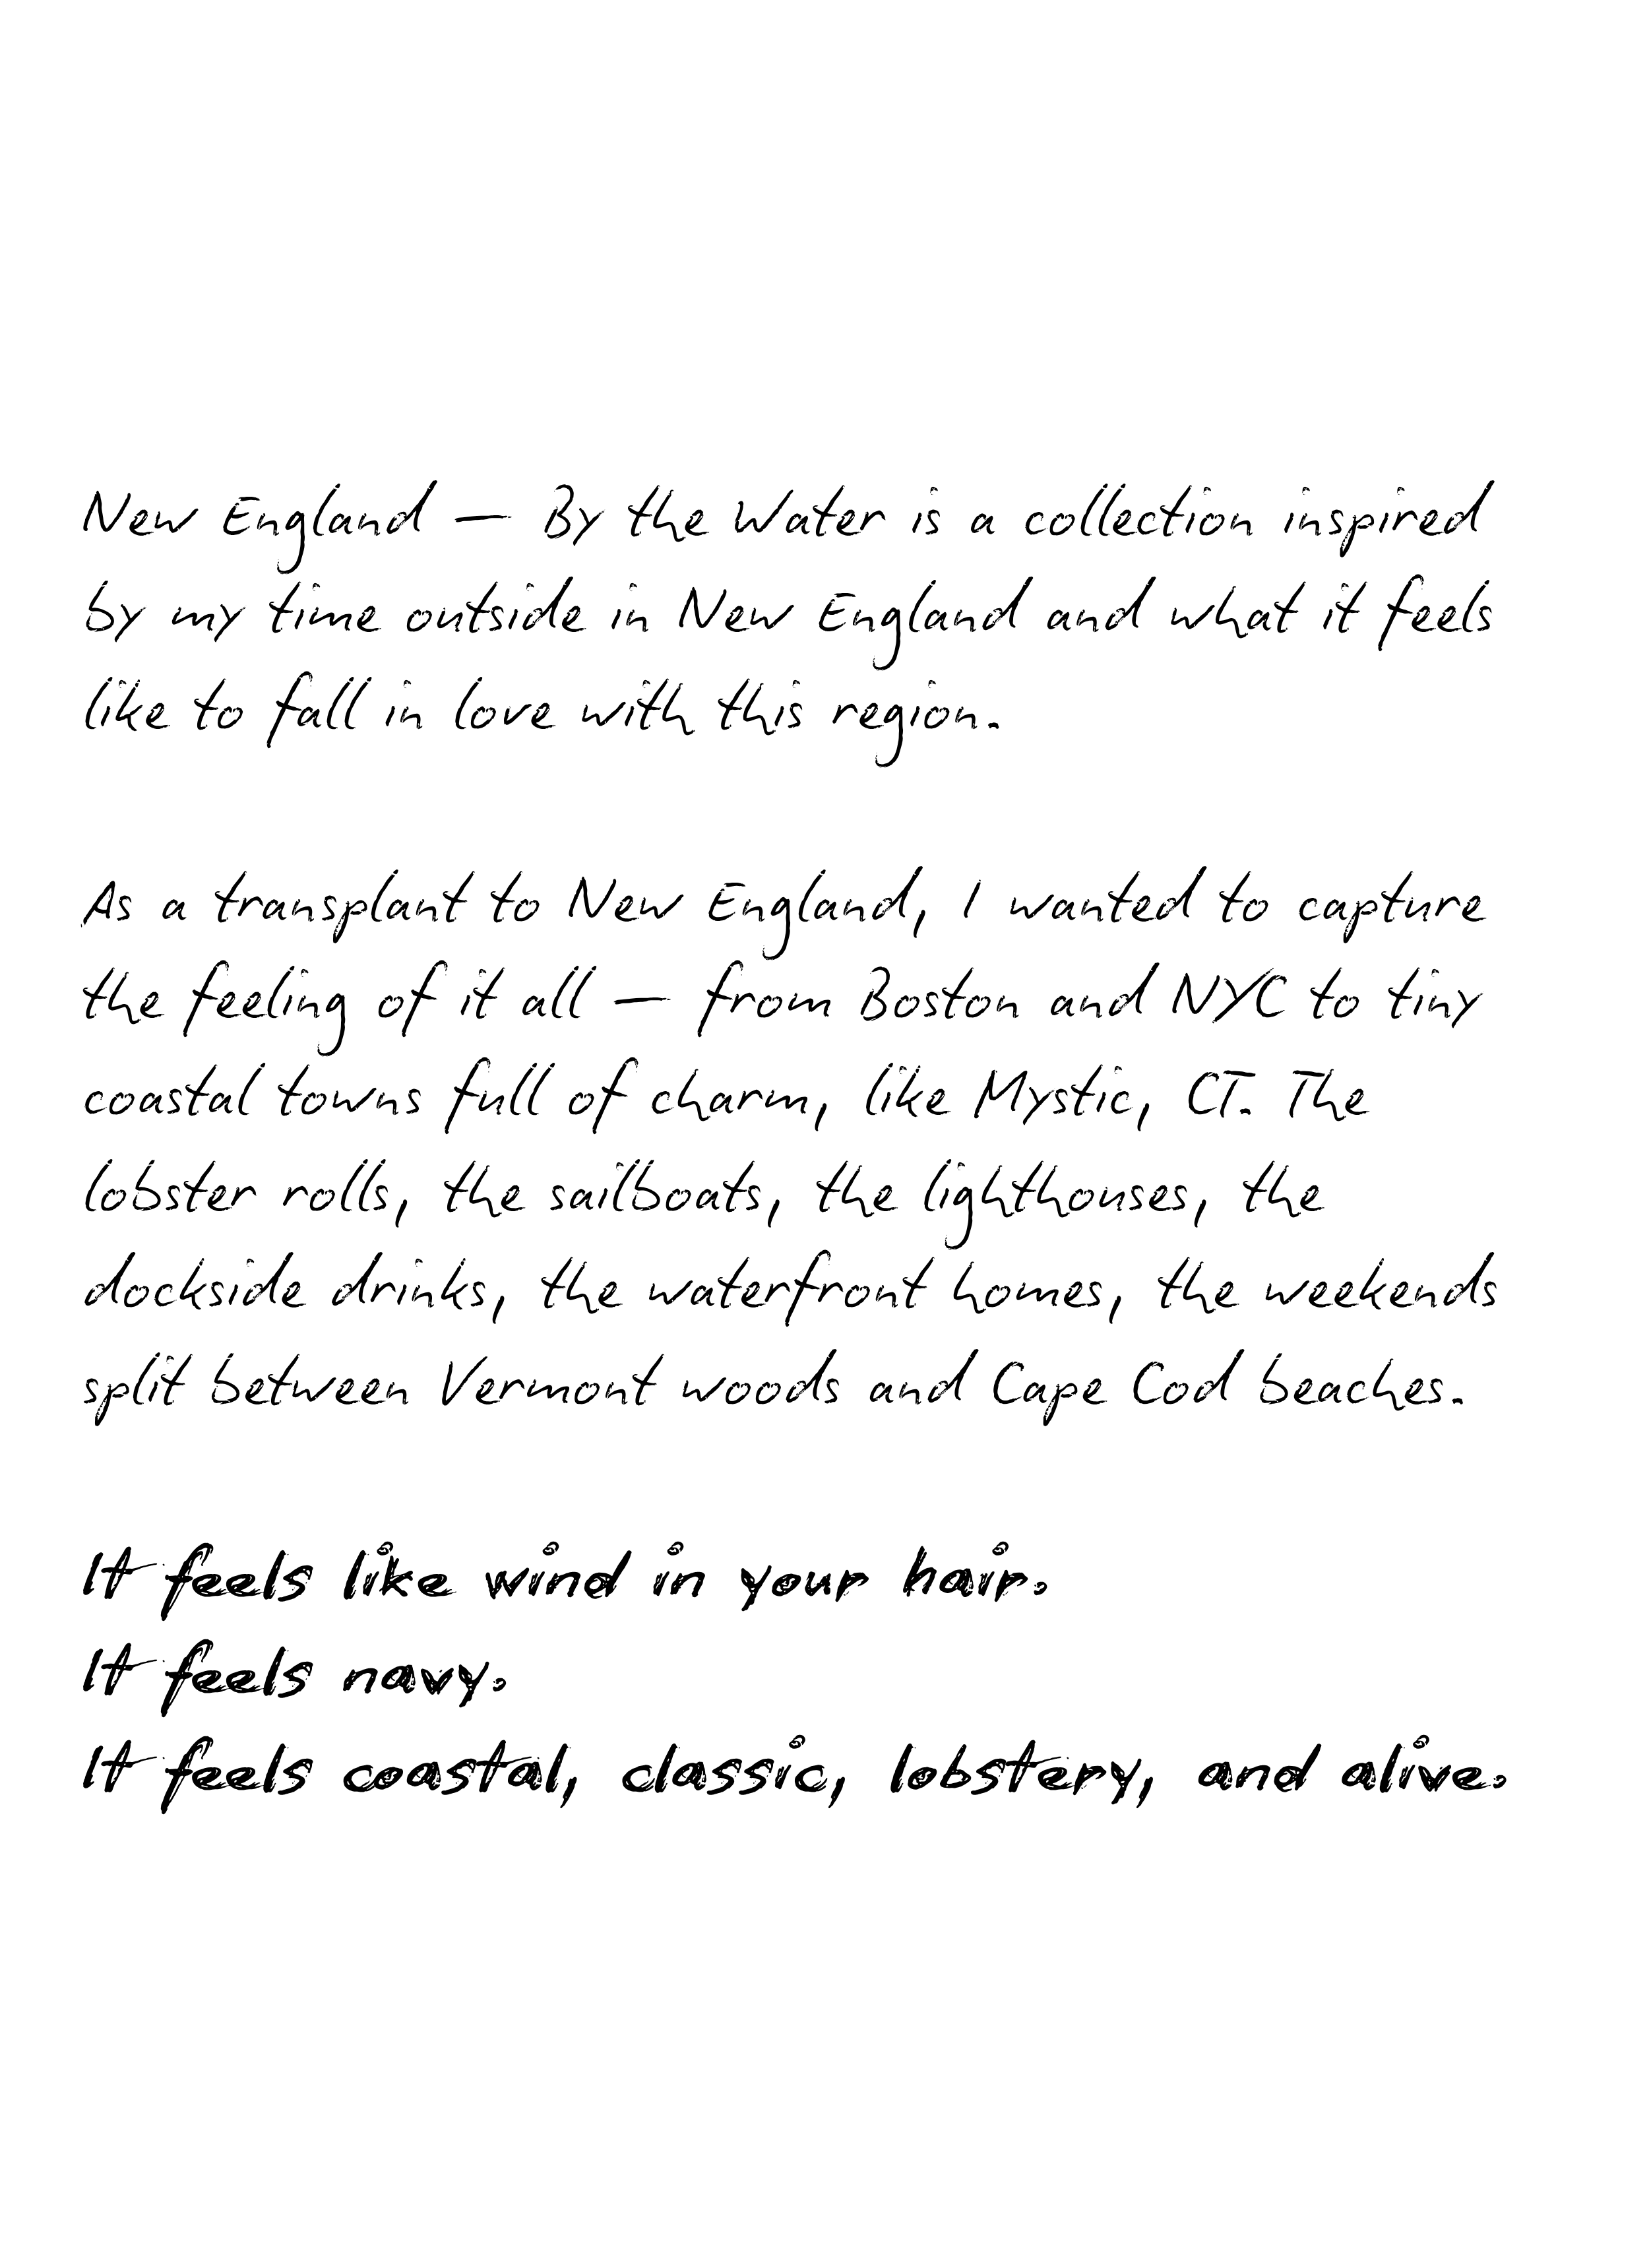 New England — By the Water is a collection inspired
by my time outside in New England and what it feels
like to fall in love with this region.
As a transplant to New England, I wanted to capture
the feeling of it all — from Boston and NYC to tiny
coastal towns full of charm, like Mystic, CT. The
lobster rolls, the sailboats, the lighthouses, the
dockside drinks, the waterfront homes, the weekends
split between Vermont woods and Cape Cod beaches.
It feels like wind in your hair.
It feels navy.
It feels coastal, classic, lobstery, and alive.